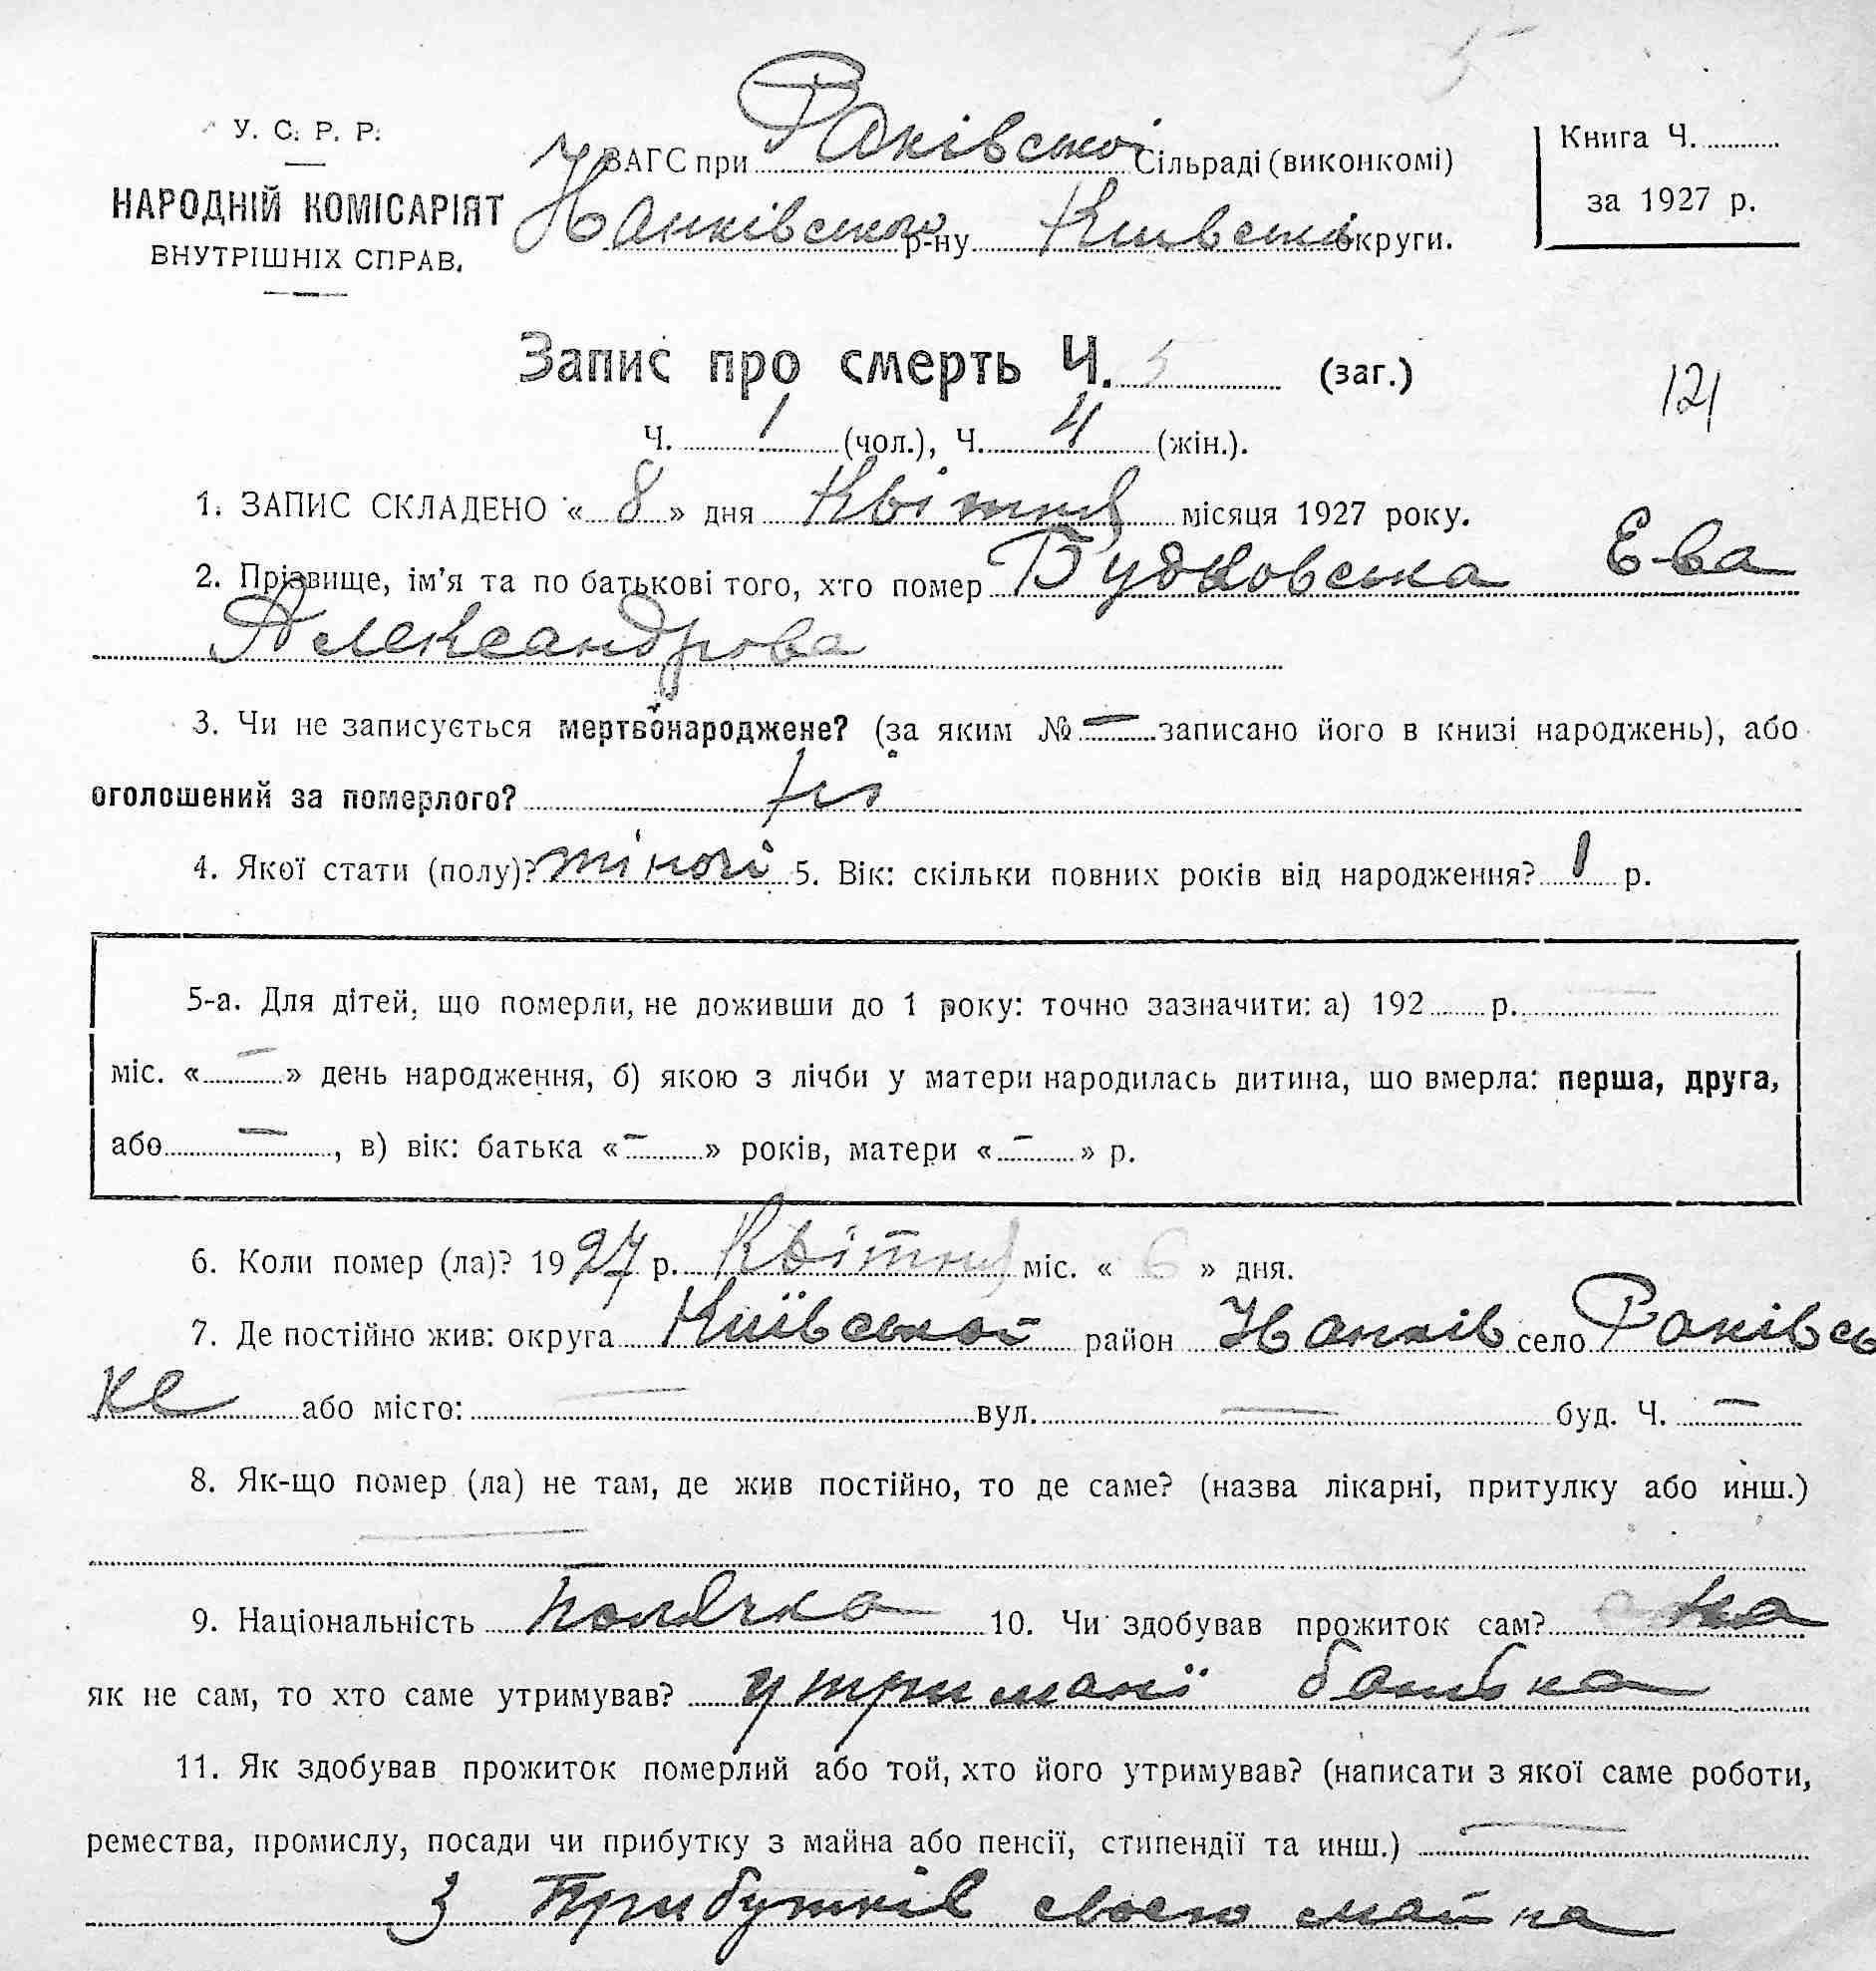 5
У. С. Р. Р.
НАРОДНІЙ КОМІСАРІЯТ
ВНУТРІШНІХ СПРАВ.
ЗАГС при Раківській Сільраді (виконкомі)
р-ну Київської округи.
Книга Ч.
за 1927 р.
Запис про смерть Ч. 5 (заг.)
121
Ч. 1 (чол.), Ч. 4 (жін.).
1. ЗАПИС СКЛАДЕНО « 8 » дня Квітня місяця 1927 року.
2. Прізвище, ім’я та по батькові того, хто помер Будковська Ева
Александрова
3. Чи не записується мертвонароджене? (за яким № — записано його в книзі народжень), або
оголошений за померлого? ні
4. Якої стати (полу)? жіночі 5. Вік: скільки повних років від народження? 1 р.
5-а. Для дітей, що померли, не доживши до 1 року: точно зазначити: а) 192 р. —
міс. « — » день народження, б) якою з лічби у матери народилась дитина, що вмерла: перша, друга,
або —, в) вік: батька « — » років, матери « — » р.
6. Коли помер (ла)? 1927 р. Квітня міс. « 6 » дня.
7. Де постійно жив: округа Київської район село Раківсь
ке або місто: — вул. — буд. Ч. —
8. Як-що помер (ла) не там, де жив постійно, то де саме? (назва лікарні, притулку або инш.)
—
9. Національність Полячка 10. Чи здобував прожиток сам? на
як не сам, то хто саме утримував? утримані батька
11. Як здобував прожиток померлий або той, хто його утримував? (написати з якої саме роботи,
ремества, промислу, посади чи прибутку з майна або пенсії, стипендії та инш.) —
З Прибутків свого майна